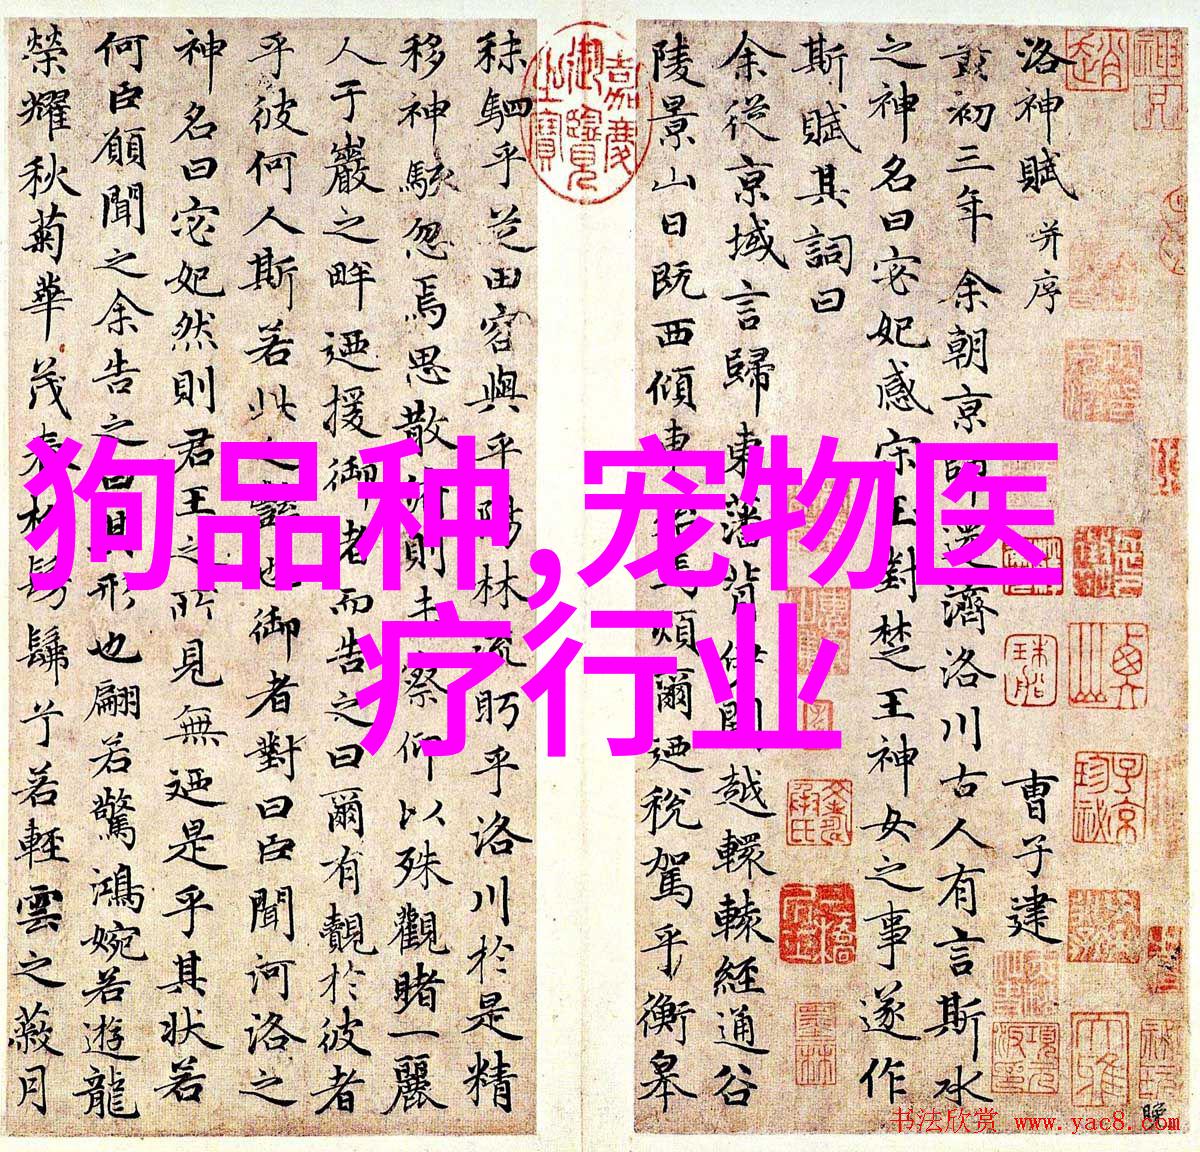 洛神賦 并序
曹子建
黃初三年余朝京師還濟洛川古人有言斯水
之神名曰宓妃感宋玉對楚王神女之事遂作
斯賦其詞曰
余從京域言歸東藩背伊闕越轘轅經通谷
陵景山日既西傾車殆馬煩爾迺稅駕乎衡皋
秣駟乎芝田容與乎陽林流眄乎洛川於是精
移神駭忽焉思散俯則未察仰以殊觀睹一麗
人于巖之畔迺援御者而告之曰爾有覿於彼者
乎彼何人斯若此之豔也御者對曰臣聞河洛之
神名曰宓妃然則君王之所見無迺是乎其狀若
何臣願聞之余告之曰其形也翩若驚鴻婉若遊龍
榮耀秋菊華茂春松髣髴兮若輕雲之蔽月
嘉慶御覽之寶
狗品种,宠物医
疗行业
书法欣赏 www.yac8.com